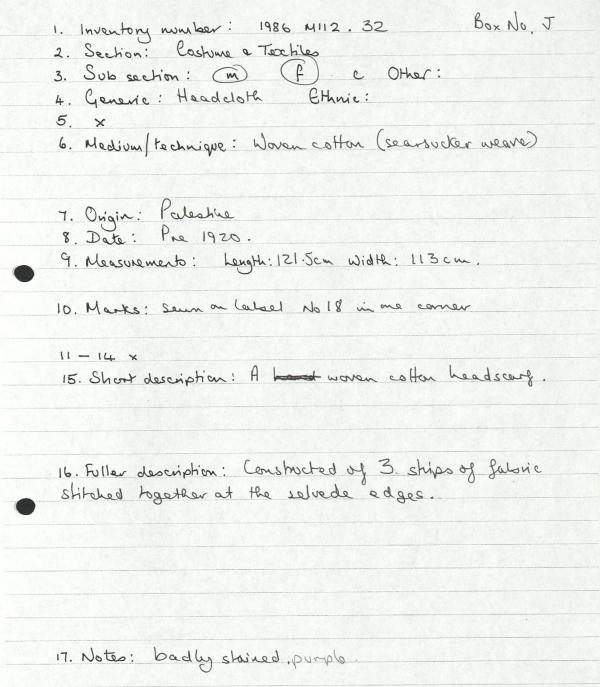 1. Inventory number: 1986 M112.32 Box No. J
2. Section: Costume & Textiles
3. Sub section: m f c Other:
4. Generic: Headcloth Ethnic:
5. x
6. Medium/technique: Woven cotton (searsucker weave)
7. Origin: Palestine
8. Date: Pre 1920.
9. Measurements: Length: 121.5cm Width: 113cm.
10. Marks: sewn on label No 18 in one corner
11 – 14 x
15. Short description: A woven cotton headscarf.
16. Fuller description: Constructed of 3 strips of fabric
stitched together at the selvede edges.
17. Notes: badly stained, purple.